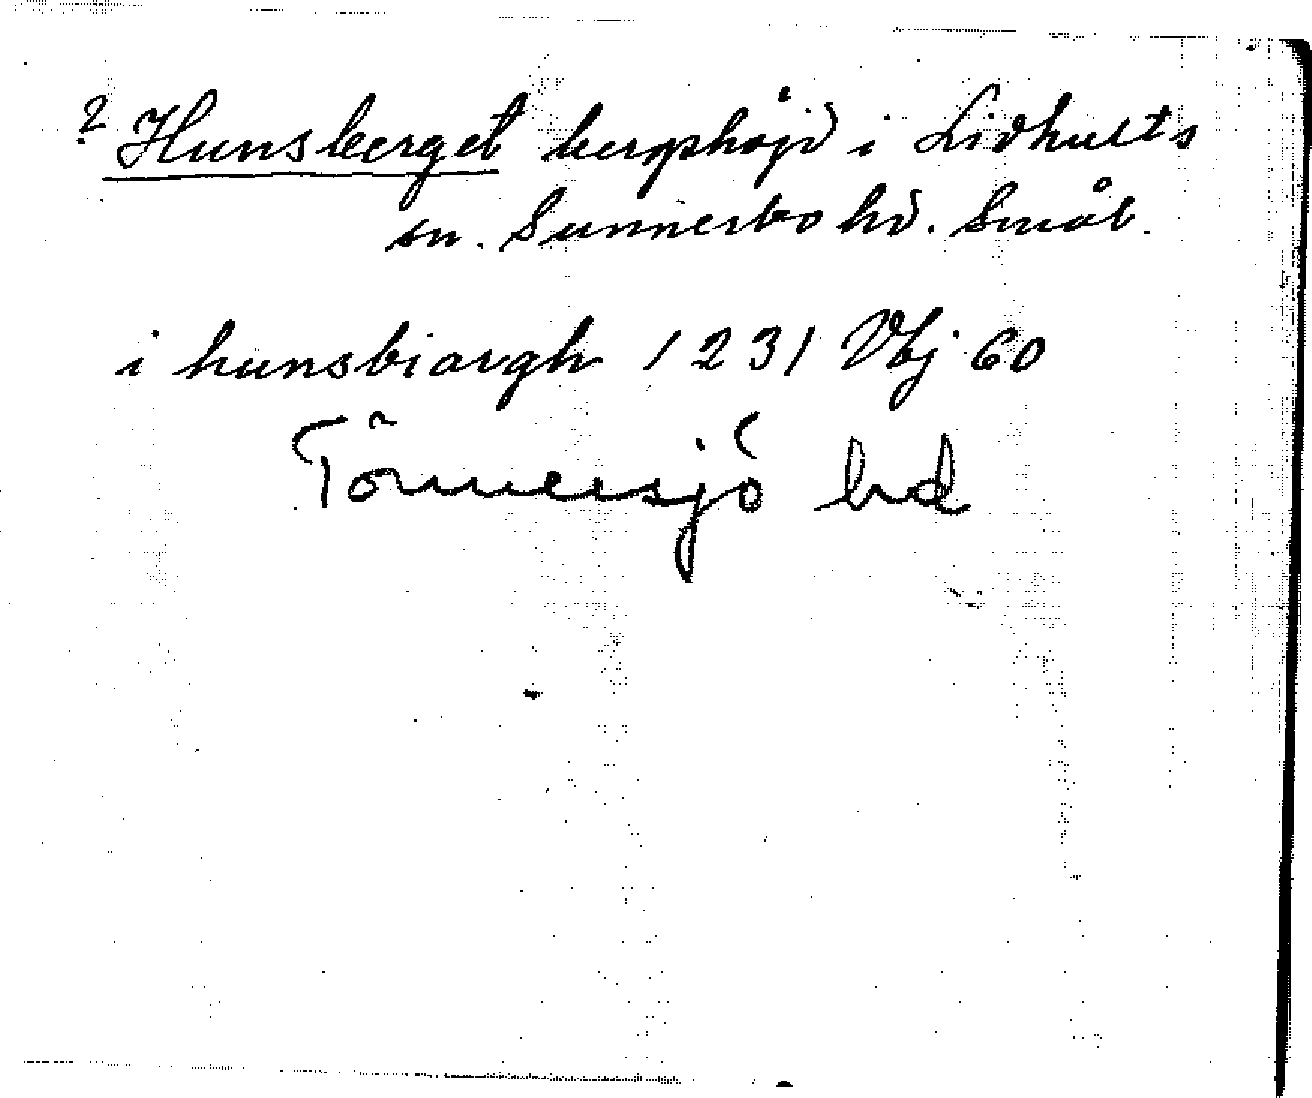 ? Hunsberget bergshöjd i Lidhults
sn. Sunnerbo hd. Smål.
i hunsbiargh 1231 Vbj 60
Tönnersjö hd